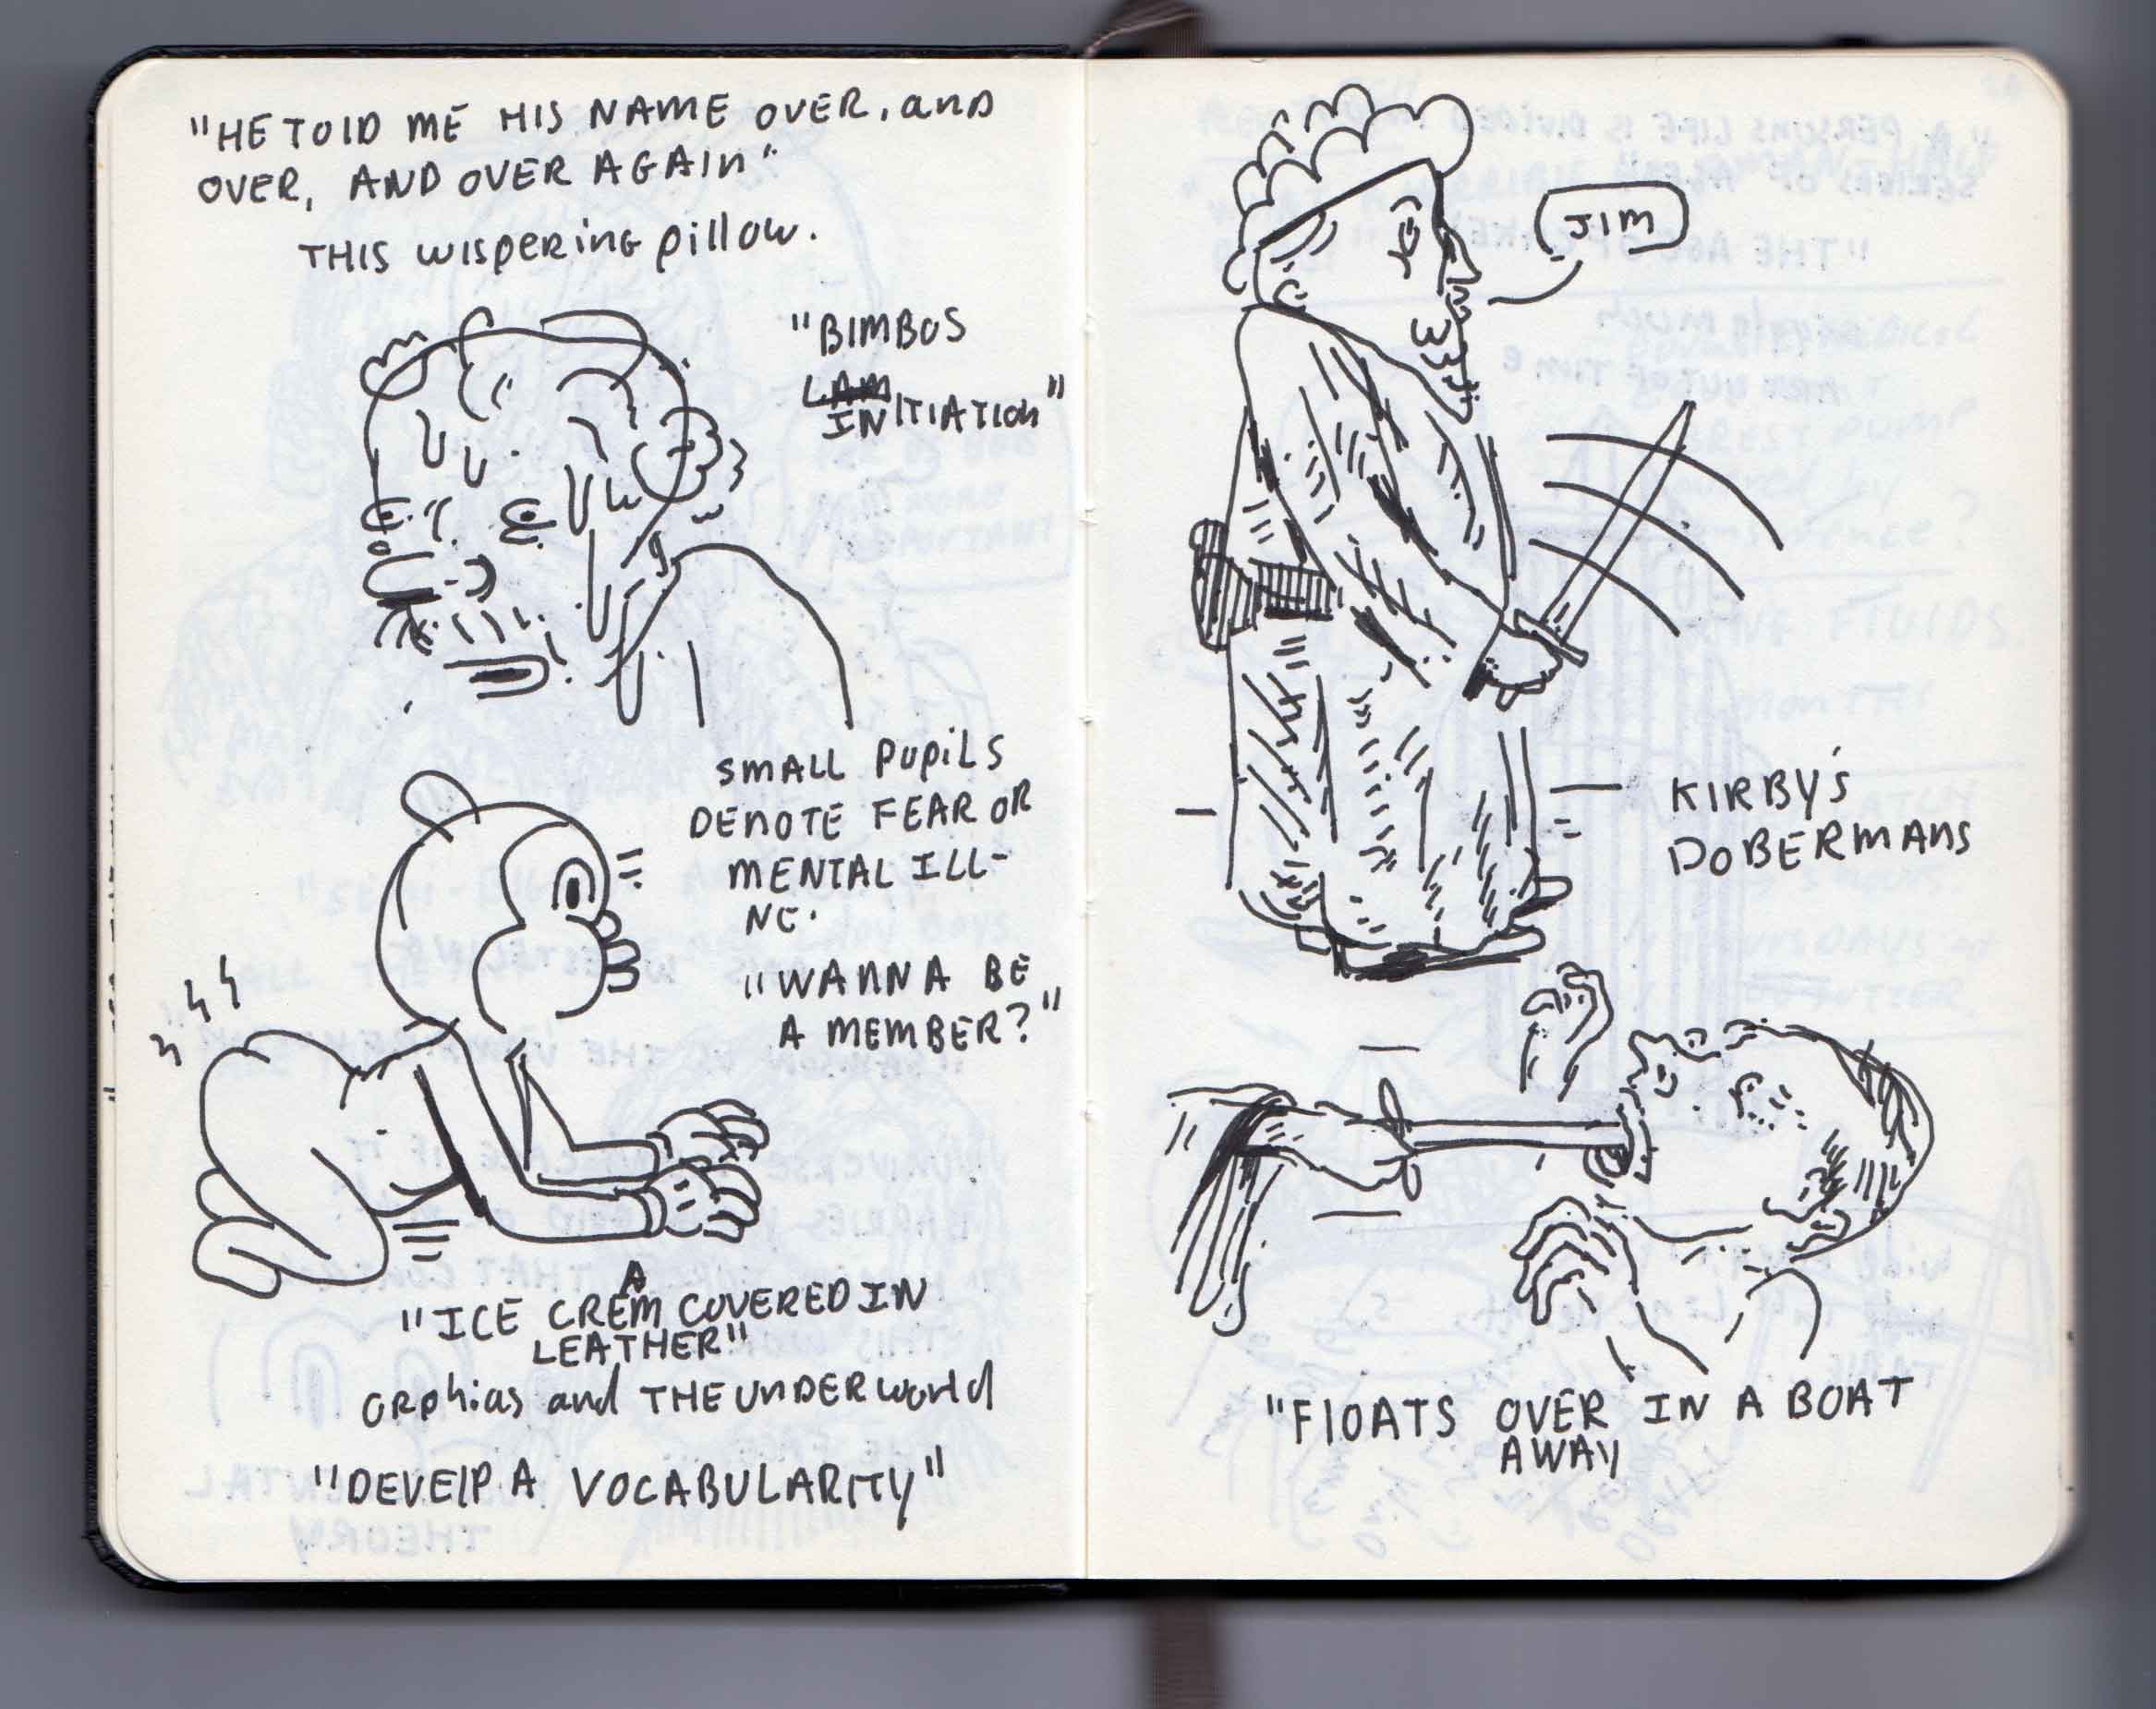 "HE TOlD ME HIS NAME OVER, and
OVER, AND OVER AGAIN"
THIS WISPERING pillow.
"BIMBOS
INITIATION"
SMALL PUPILS
DENOTE FEAR OR
MENTAL ILL-
NE.
"WANNA BE
A MEMBER?"
"ICE CREAM COVERED IN
LEATHER"
ORphias and THE UNDERWORld
"DEVElP A VOCABULARITY"
JIM
KIRBY'S
DOBERMANS
"FlOATS OVER IN A BOAT
AWAY